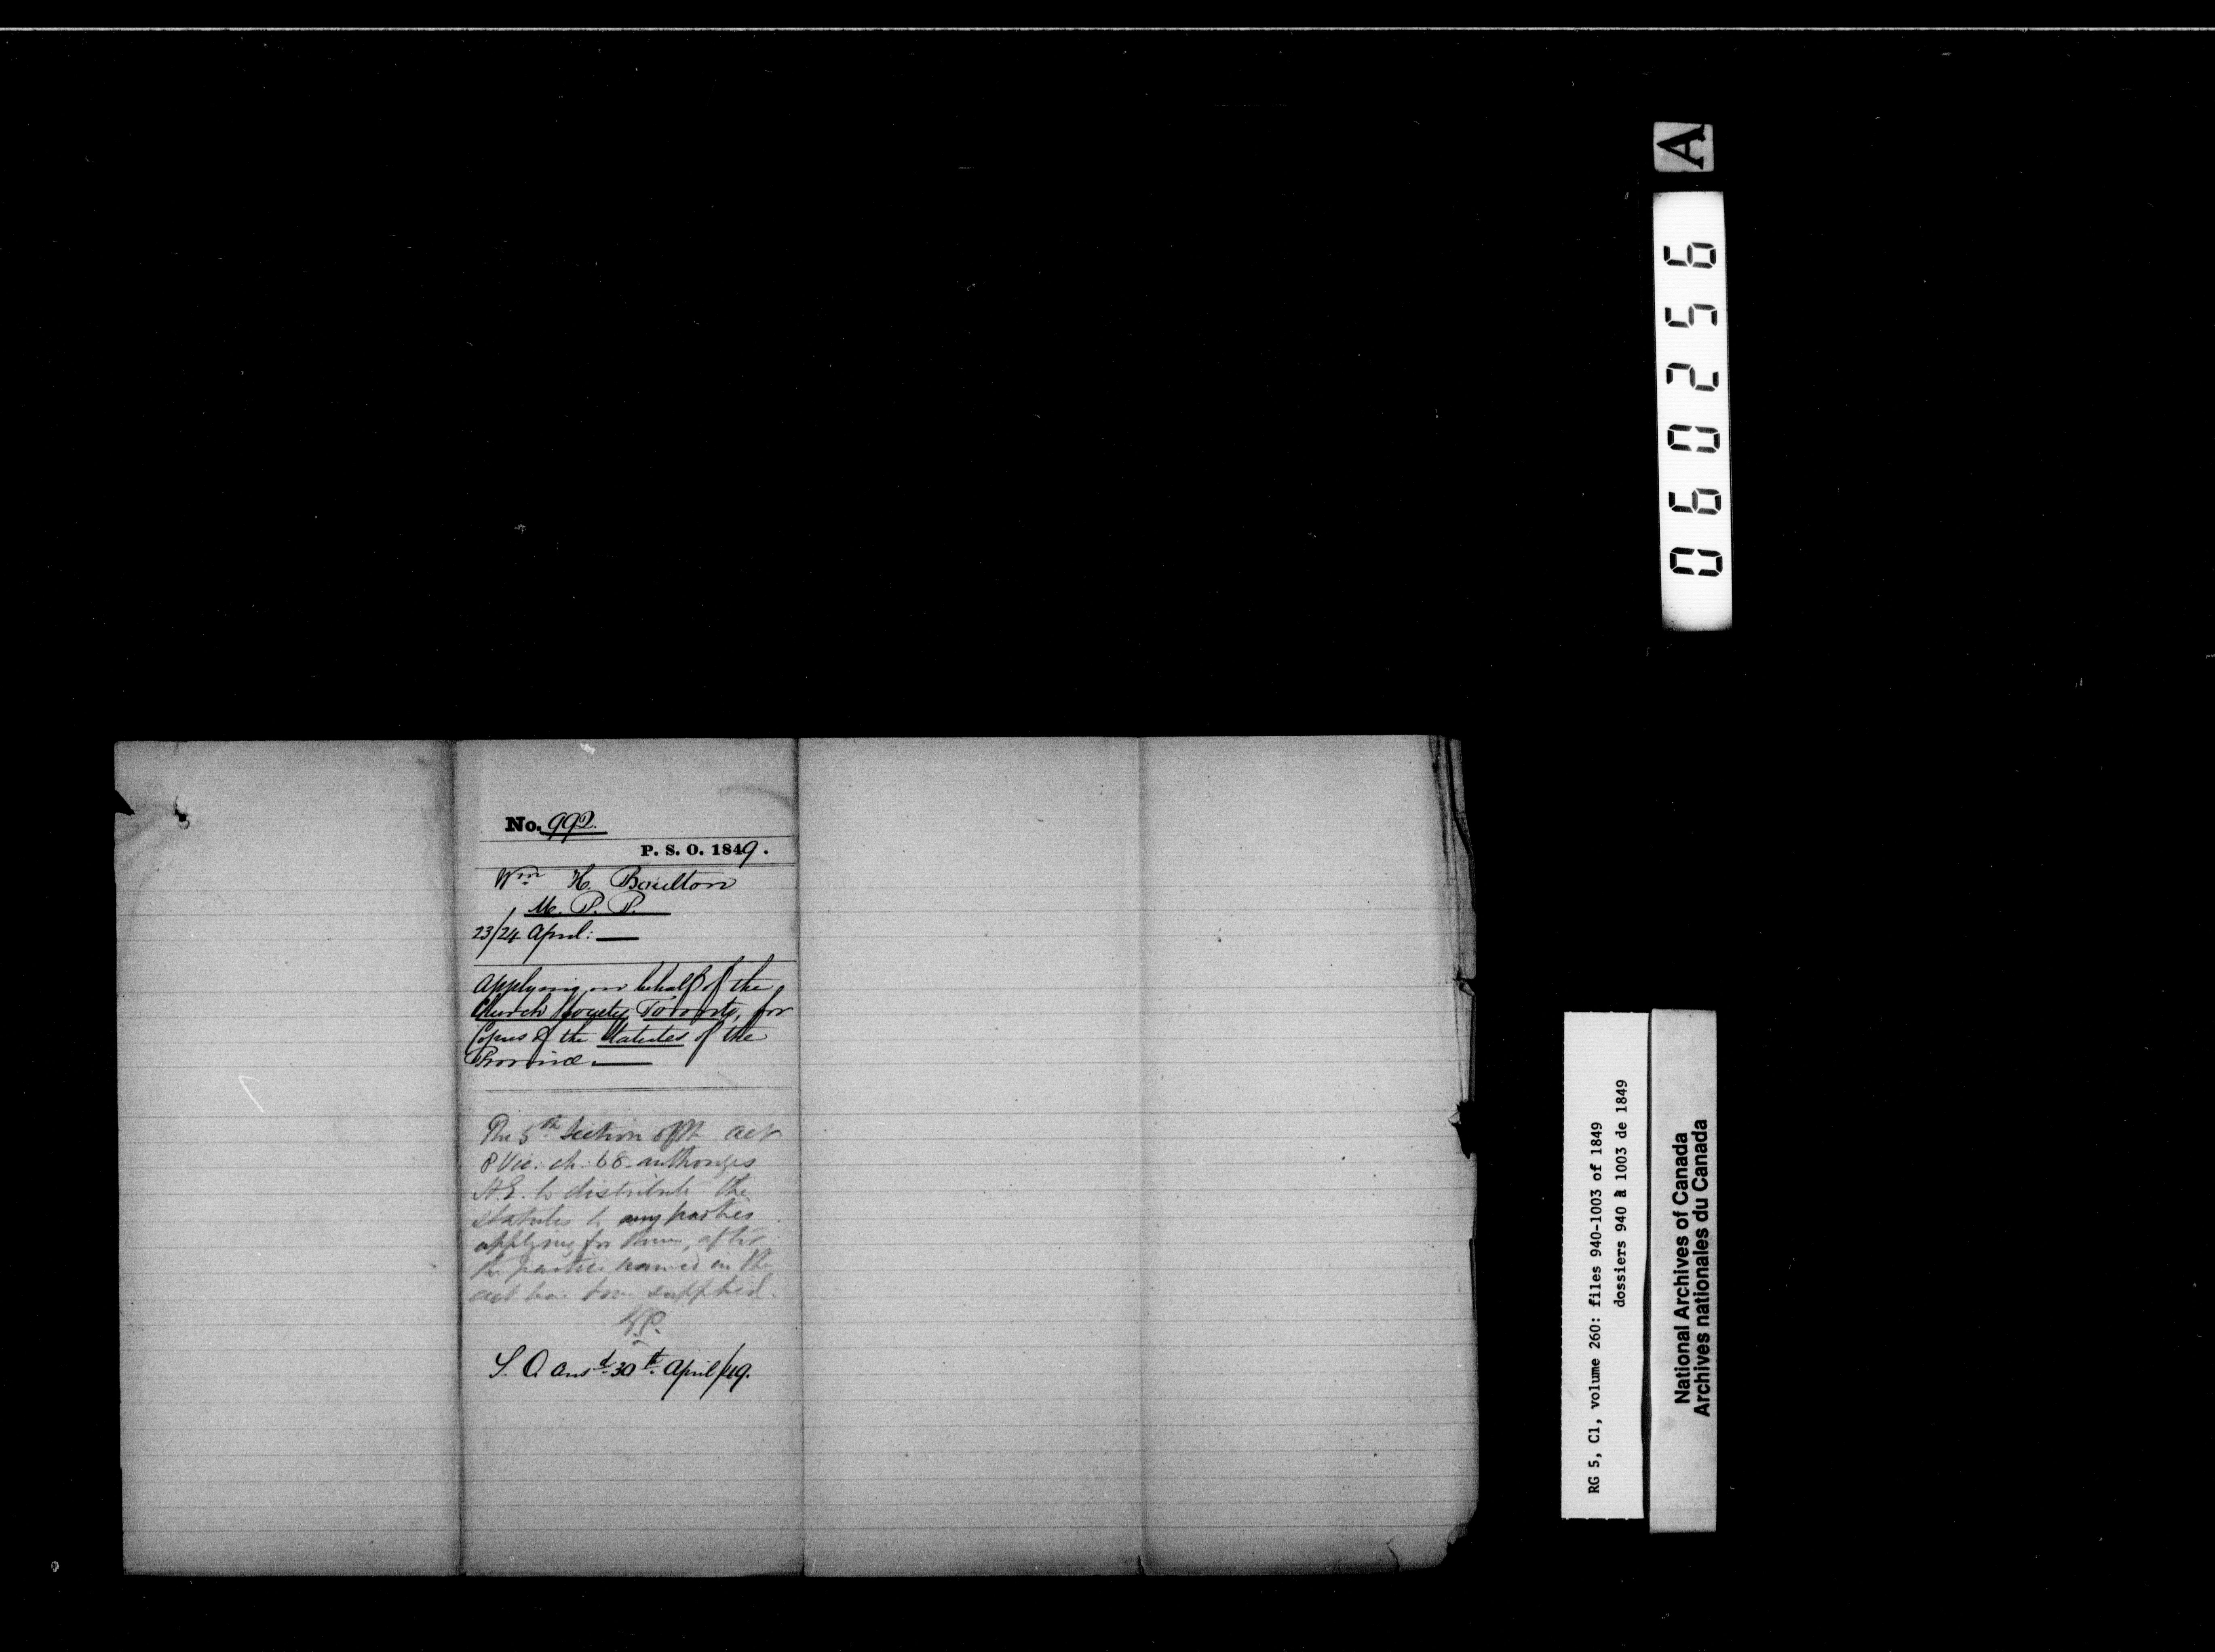 No. 992.
P. S. O. 1849.
Wm H. Boulton
M. P. P.
23/24 April:
Applying on behalf of the
Church Society Toronto, for
Copies of the Statutes of the
Province.
The 5th Section of the act
8 Vic. ch. 68 authorizes
H.E. to distribute the
statutes to any parties
applying for them, after
the parties named in the
act have been supplied.
S. O. ansd 30th April/49.
A
060256
RG 5, C1, volume 260: files 940-1003 of 1849
dossiers 940 à 1003 de 1849
National Archives of Canada
Archives nationales du Canada